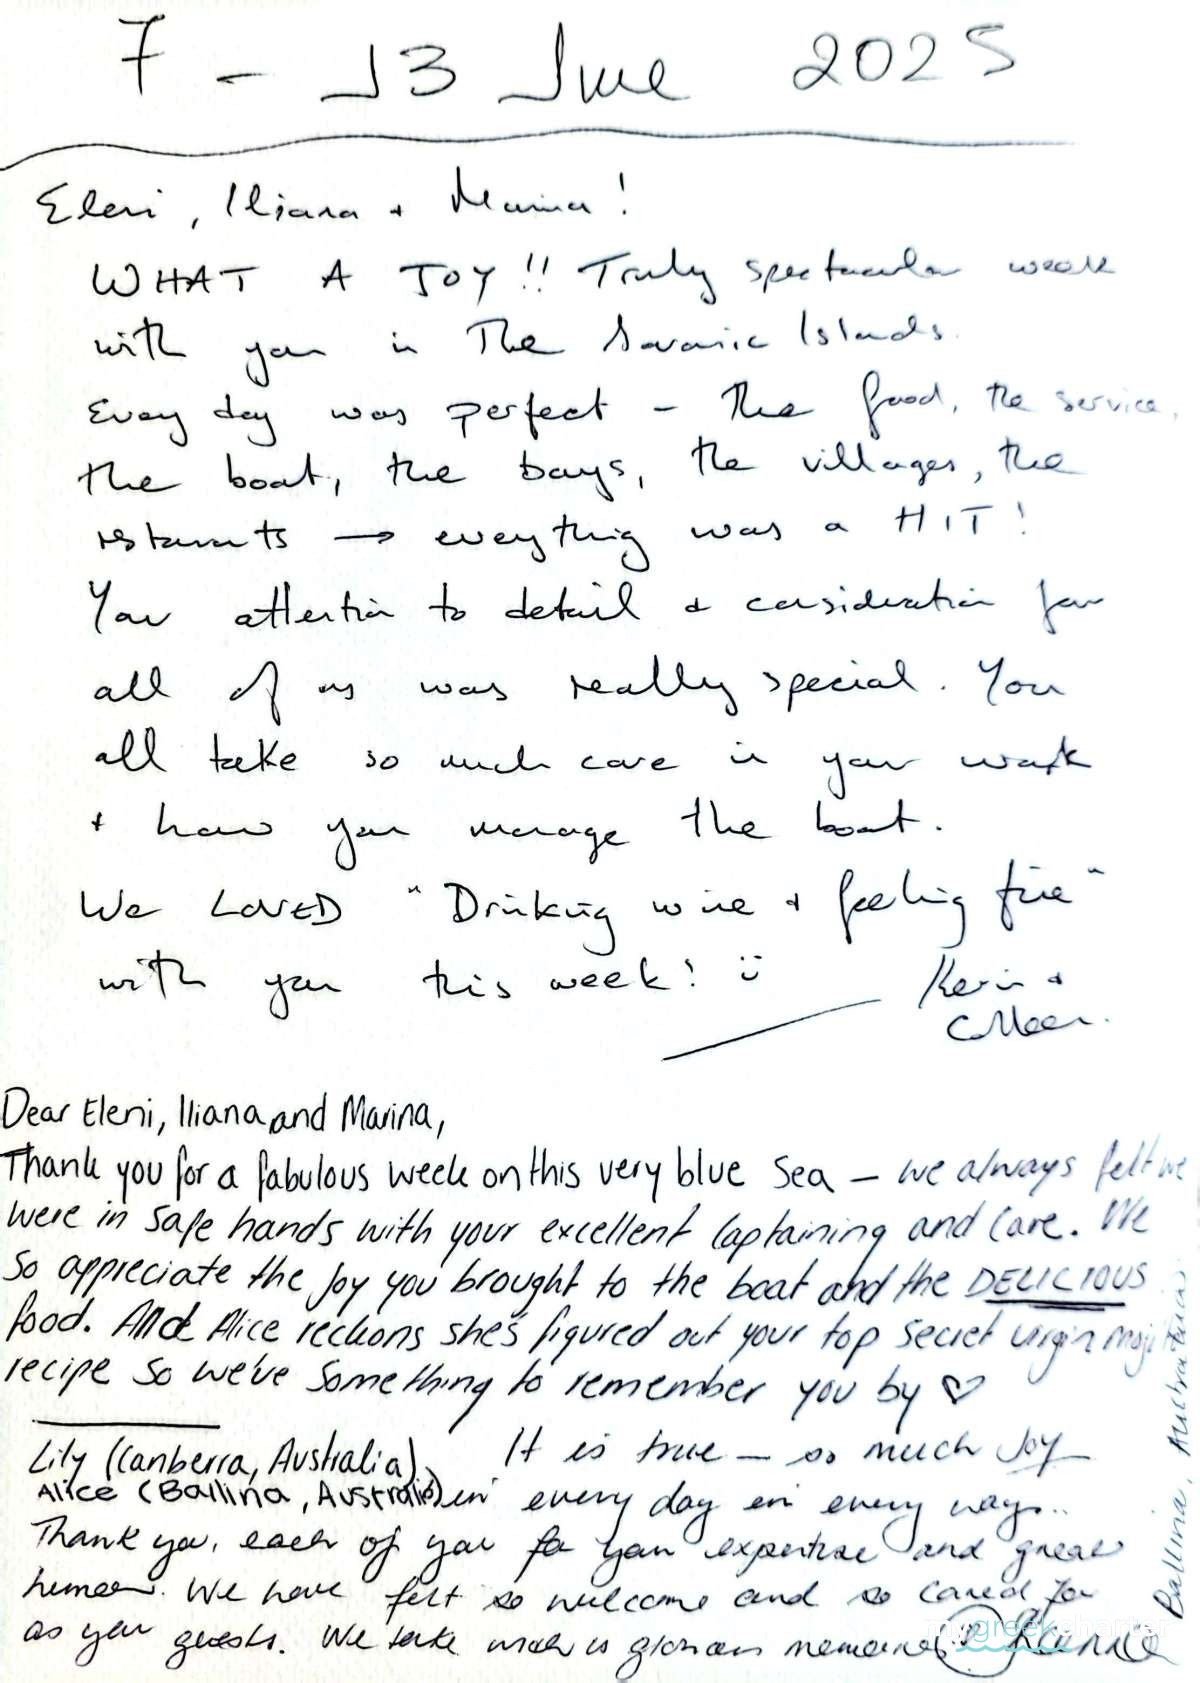 7 - 13 June 2025
Eleni, Iliana + Marina!
WHAT A JOY!! Truly spectacular week
with you in The Saronic Islands.
Every day was perfect - the food, the service,
the boat, the bays, the villages, the
restaurants → everything was a HIT!
Your attention to detail & consideration for
all of us was really special. You
all take so much care in your work
+ how you manage the boat.
We LOVED "Drinking wine & feeling fine"
with you this week! :)
Kevin +
Colleen.
Dear Eleni, Iliana and Marina,
Thank you for a fabulous week on this very blue sea – we always felt we
were in safe hands with your excellent captaining and care. We
so appreciate the joy you brought to the boat and the DELICIOUS
food. And Alice reckons she's figured out your top secret virgin moji
recipe so we've something to remember you by ♡
Lily (Canberra, Australia)
Alice (Ballina, Australia)
It is true – so much joy
in every day in every way..
Thank you, each of you for your expertise and great
humour. We have felt so welcome and so cared for
as your guests. We take with us glorious memories.
Ballina, Australia
mygreekcharter